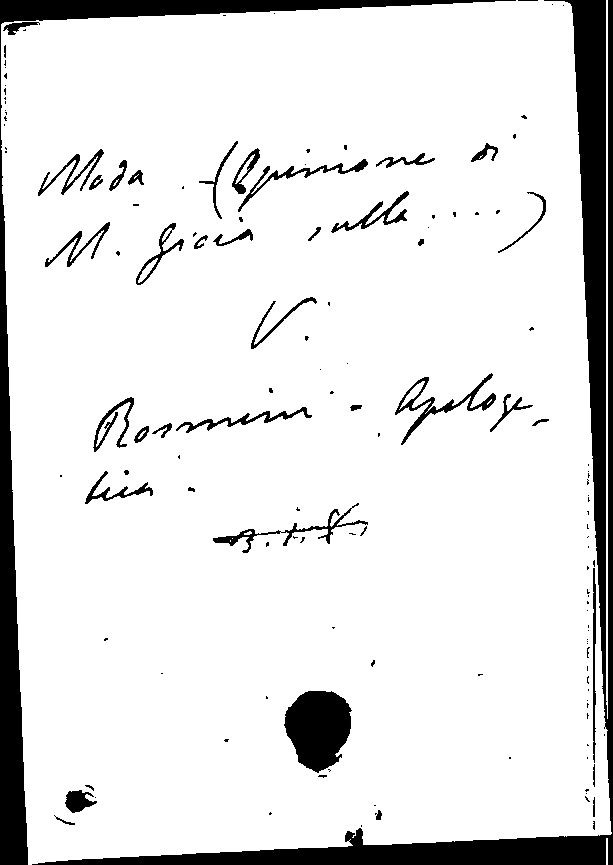 Moda - (Opinione di
M. Gioia sulla ....)
V.
Rosmini - Apologe-
tica -